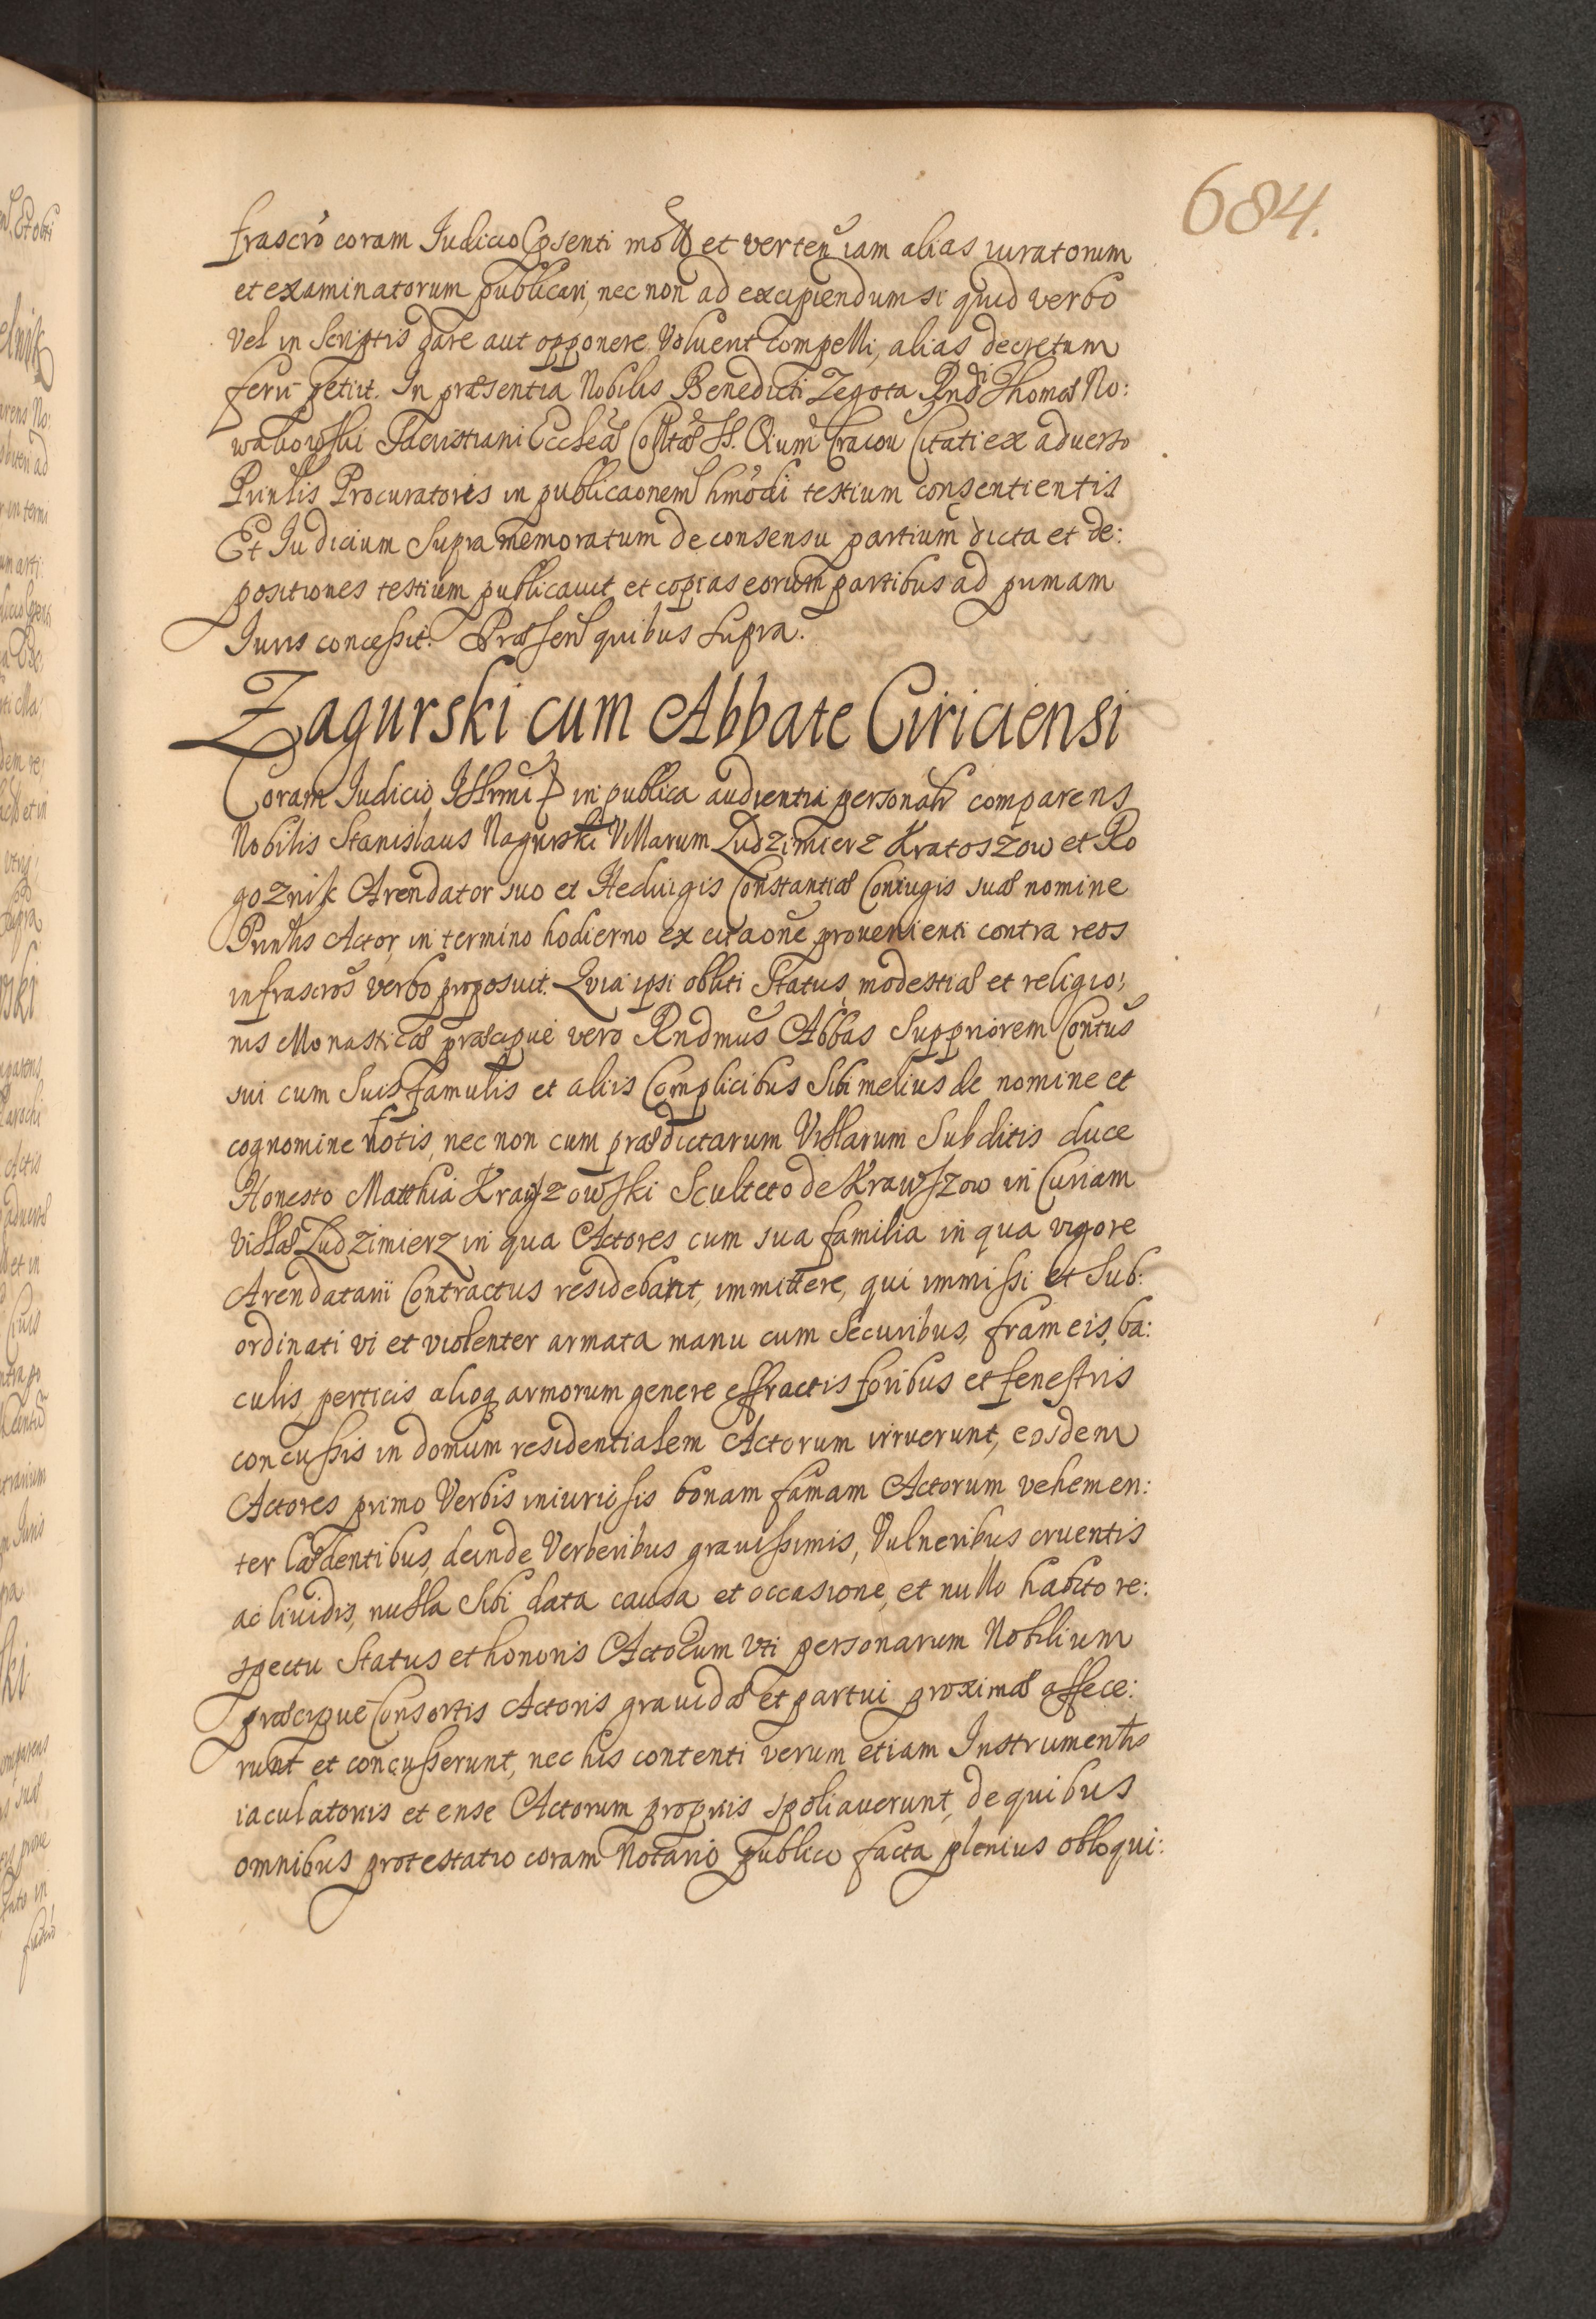 684.
frascro coram Iudicio Psenti motor et verten iam alias iuratorum
et examinatorum publicari, nec non ad excipiendum si quid verbo
vel in Scriptis dare aut opponere voluerit compelli, alias decretum
ferri petiit. In præsentia Nobilis Benedicti Zegota Rndi Thomæ No:
wakowski Sacristiani Ecclæ Colltæ SS. Oium Cracou Citati ex aduerso
Prinlis Procuratoris in publicaonem hmodi testium consentientis
Et Iudicium Supra memoratum de consensu partium dicta et de:
positiones testium publicauit et copias eorum partibus ad primam
Iuris concessit. Præsen quibus supra.
Zagurski cum Abbate Ciriciensi
Coram Iudicio Illrmi P in publica audientia personalr comparens
Nobilis Stanislaus Nagurski Villarum Ludzimierz Kratoszow et Ro
goznik Arendator suo et Heduigis Constantiæ Coniugis suæ nomine
Prinlis Actor, in termino hodierno ex citaone prouenienti contra reos
infrascros verbo proposuit. Quia ipsi obliti Status, modestiæ et religio:
nis Monasticæ præcipue vero Rndmus Abbas Suppriorem Contus
sui cum Suis famulis et aliis Complicibus Sibi melius de nomine et
cognomine notis, nec non cum prædictarum Villarum Subditis duce
Honesto Matthia Krauszowski Sculteto de Krawszow in Curiam
Villæ Ludzimierz in qua Actores cum sua familia in qua vigore
Arendatarii Contractus residebant, immittere, qui immissi et Sub:
ordinati vi et violenter armata manu cum Securibus, frameis, ba:
culis perticis alioq armorum genere effractis foribus et fenestris
concussis in domum residentialem Actorum irruerunt, eosdem
Actores primo Verbis iniuriosis bonam famam Actorum vehemen:
ter lædentibus, deinde Verberibus grauissimis, Vulneribus cruentis
ac liuidis, nulla Sibi data causa et occasione, et nullo habito re:
spectu Status et honoris Actorum vti personarum Nobilium
præcipue Consortis Actoris grauidæ et partui proximæ affece:
runt et concusserunt, nec his contenti verum etiam Instrumentis
iaculatoriis et ense Actorum propriis spoliauerunt, de quibus
omnibus protestatio coram Notario publico facta plenius obloqui: